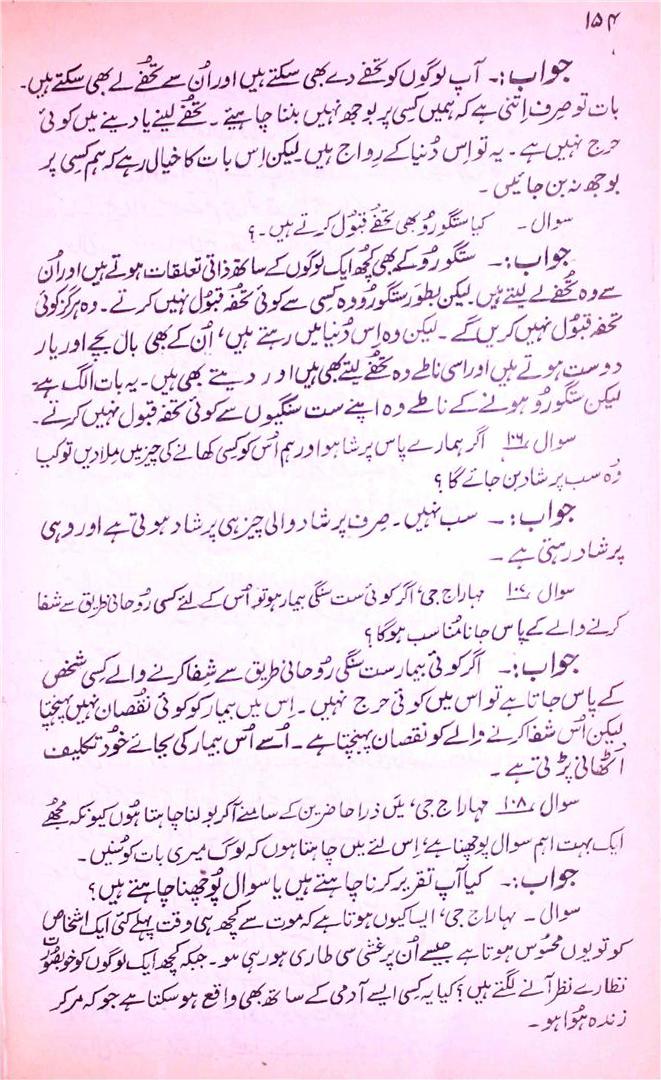 ۱۵۴
جواب:۔ آپ لوگوں کو تحفے دے بھی سکتے ہیں اور اُن سے تحفے لے بھی سکتے ہیں۔
بات تو صِرف اِتنی ہے کہ ہمیں کِسی پر بوجھ نہیں بننا چاہیئے۔ تحفے لینے یا دینے میں کوئی
حرج نہیں ہے۔ یہ تو اِس دُنیا کے رِواج ہیں۔ لیکن اِس بات کا خیال رہے کہ ہم کِسی پر
بوجھ نہ بن جائیں۔
سوال۔ کیا ستگورُو بھی تحفے قبُول کرتے ہیں۔؟
جواب:۔ ستگورُو کے بھی کچُھ ایک لوگوں کے ساتھ ذاتی تعلقات ہوتے ہیں اور اُن
سے وہ تحُفے لے لیتے ہیں۔ لیکن بطَور ستگورُو وہ کِسی سے کوئی تحُفہ قبُول نہیں کرتے۔ وہ ہرگز کوئی
تحفہ قبُول نہیں کریں گے۔ لیکن وہ اِس دُنیا میں رہتے ہیں، اُن کے بھی بال بچے اور یار
دوست ہوتے ہیں اور اسی ناطے وہ تحُفے لیتے بھی ہیں اور دیتے بھی ہیں۔ یہ بات الگ ہے
لیکن ستگورُو ہونے کے ناطے وہ اپنے ست سنگیوں سے کوئی تحفہ قبول نہیں کرتے۔
سوال ۱۰۶ اگر ہمارے پاس پرشاد ہو اور ہم اُس کو کِسی کھانے کی چیز میں مِلا دیں تو کیا
وُہ سب پرشاد بن جائے گا؟
جواب:۔ سب نہیں۔ صِرف پرشاد والی چیز ہی پرشاد ہوتی ہے اور وہی
پرشاد رہتی ہے۔
سوال ۱۰۷ مہاراج جی، اگر کوئی ست سنگی بیمار ہو تو اُس کے لئے کسی رُوحانی طریق سے شفا
کرنے والے کے پاس جانا مُناسب ہوگا؟
جواب:۔ اگر کوئی بیمار ست سنگی رُوحانی طریق سے شفا کرنے والے کِسی شخص
کے پاس جاتا ہے تو اس میں کوئی حرج نہیں۔ اِس میں بیمار کو کوئی نقُصان نہیں پہنچتا
لیکن اُس شفا کرنے والے کو نقصان پہنچتا ہے۔ اُسے اُس بیمار کی بجائے خُود تکلیف
اُٹھانی پڑتی ہے۔
سوال ۱۰۸ مہاراج جی، میَں ذرا حاضرین کے سامنے آکر بولنا چاہتا ہُوں کیونکہ مجُھے
ایک بہت اہم سوال پوچھنا ہے، اِس لئے میں چاہتا ہوں کہ لوگ میری بات کو سُنیں۔
جواب:۔ کیا آپ تقریر کرنا چاہتے ہیں یا سوال پُوچھنا چاہتے ہیں؟
سوال۔ مہاراج جی، ایسا کیوں ہوتا ہے کہ موت سے کچھ ہی وقت پہلے کئی ایک اشخاص
کو تو یوں محسُوس ہوتا ہے جیسے اُن پر غشی سی طاری ہو رہی ہو۔ جبکہ کچھ ایک لوگوں کو خوبصُورت
نظارے نظر آنے لگتے ہیں؟ کیا یہ کِسی ایسے آدمی کے ساتھ بھی واقع ہو سکتا ہے جو کہ مر کر
زندہ ہُوا ہو۔